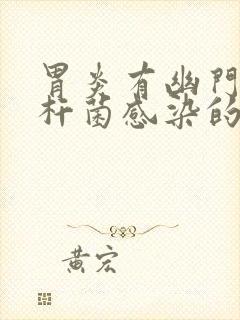 胃炎有幽門
杆菌感染的
黄宏